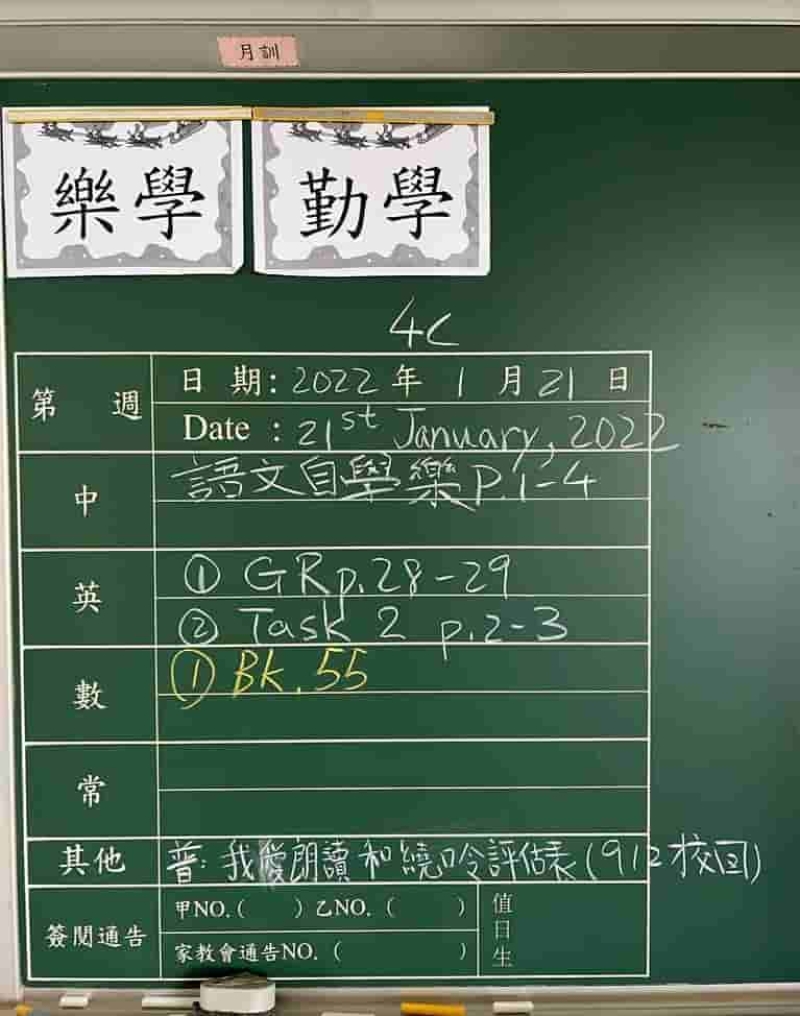 月訓
樂學 勤學
4C
第 週 日 期: 2022 年 1 月 21 日
Date : 21st January, 2022
中 語文自學樂 P.1-4
英 ① GR p.28-29
② Task 2 p.2-3
數 ① Bk. 55
常
其他 普: 我愛朗讀和繞口令評估表 (9/2校回)
簽閱通告 甲NO. ( ) 乙NO. ( ) 值日生
家教會通告NO. ( )